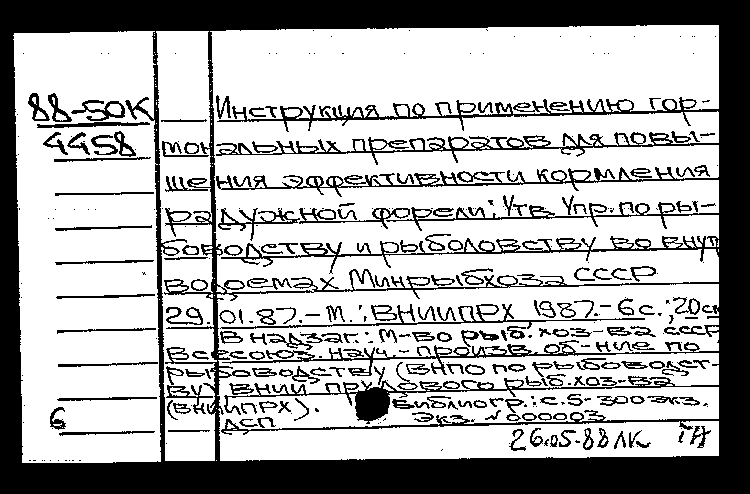 88-50К Инструкция по применению гор-
4458 мональных препаратов для повы-
шения эффективности кормления
радужной форели; Утв Упр. по ры-
боводству и рыболовству во внут
водоемах Минрыбхоза СССР
29.01.87.-М.: ВНИИПРХ 1987.-6с.; 20см
В надзаг.: М-во рыб. хоз-ва СССР
Всесоюз. науч.-произв. об-ние по
рыбоводству (ВНПО по рыбоводст-
ву) ВНИИ прудового рыб. хоз-ва
(ВНИИПРХ). Библиогр.: с.5-300экз.
6 ДСП Экз. №000003
26.05-88 ЛК